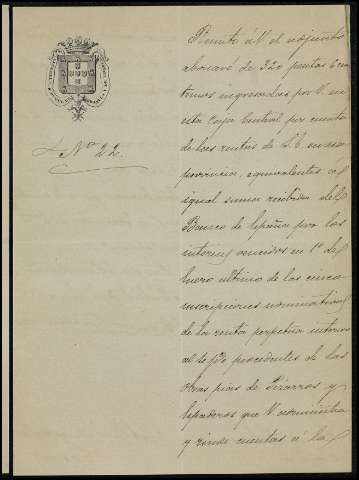 Nº 22.
Remito á V. el adjunto
abonaré de 320 pesetas
ingresadas por V. en
esta Caja Central por cuenta
de las rentas de S. E. en esa
provincia, equivalentes á
igual suma recibida del
Banco de España por los
intereses vencidos en 1º de
Enero último de las cinco
inscripciones nominativas
de la renta perpetua interior
al 4 p% procedentes de las
obras pias de Pizarros y
que V. administra
y rinde cuentas á la